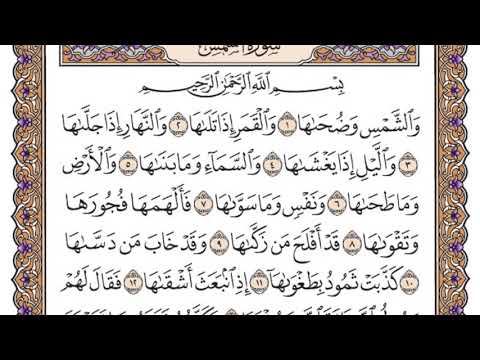 سُورَةُ الشَّمْسِ
بِسْمِ اللَّهِ الرَّحْمَٰنِ الرَّحِيمِ
وَالشَّمْسِ وَضُحَىٰهَا ١ وَالْقَمَرِ إِذَا تَلَىٰهَا ٢ وَالنَّهَارِ إِذَا جَلَّىٰهَا
٣ وَاللَّيْلِ إِذَا يَغْشَىٰهَا ٤ وَالسَّمَآءِ وَمَا بَنَىٰهَا ٥ وَالْأَرْضِ
وَمَا طَحَىٰهَا ٦ وَنَفْسٍ وَمَا سَوَّىٰهَا ٧ فَأَلْهَمَهَا فُجُورَهَا
وَتَقْوَىٰهَا ٨ قَدْ أَفْلَحَ مَن زَكَّىٰهَا ٩ وَقَدْ خَابَ مَن دَسَّىٰهَا
١٠ كَذَّبَتْ ثَمُودُ بِطَغْوَىٰهَآ ١١ إِذِ انۢبَعَثَ أَشْقَىٰهَا ١٢ فَقَالَ لَهُمْ